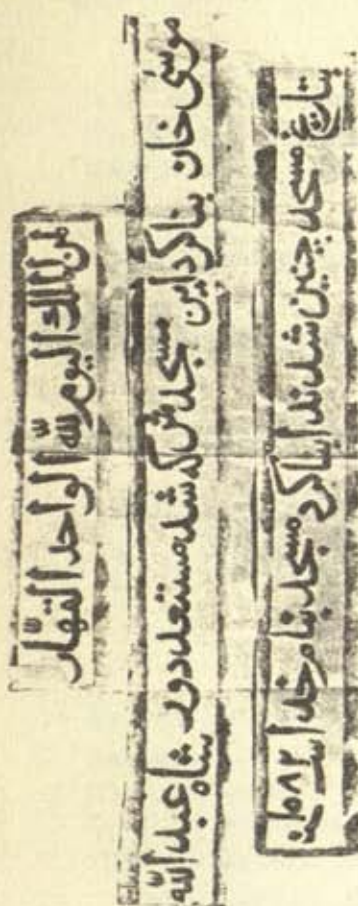 لمن الملك اليوم لله الواحد القهّار
موسی خان بنا کرد این مسجدش که شد مستعد دور شاه عبد الله
بتاریخ مسجد چنین شد ندا بنا کرد مسجد بنام خدا سنه ۱۰۸۲